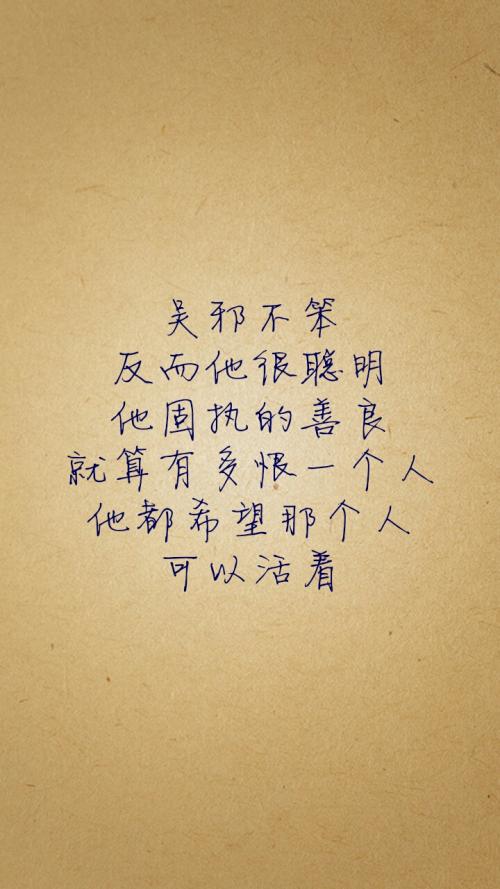 吴邪不笨
反而他很聪明
他固执的善良
就算有多恨一个人
他都希望那个人
可以活着